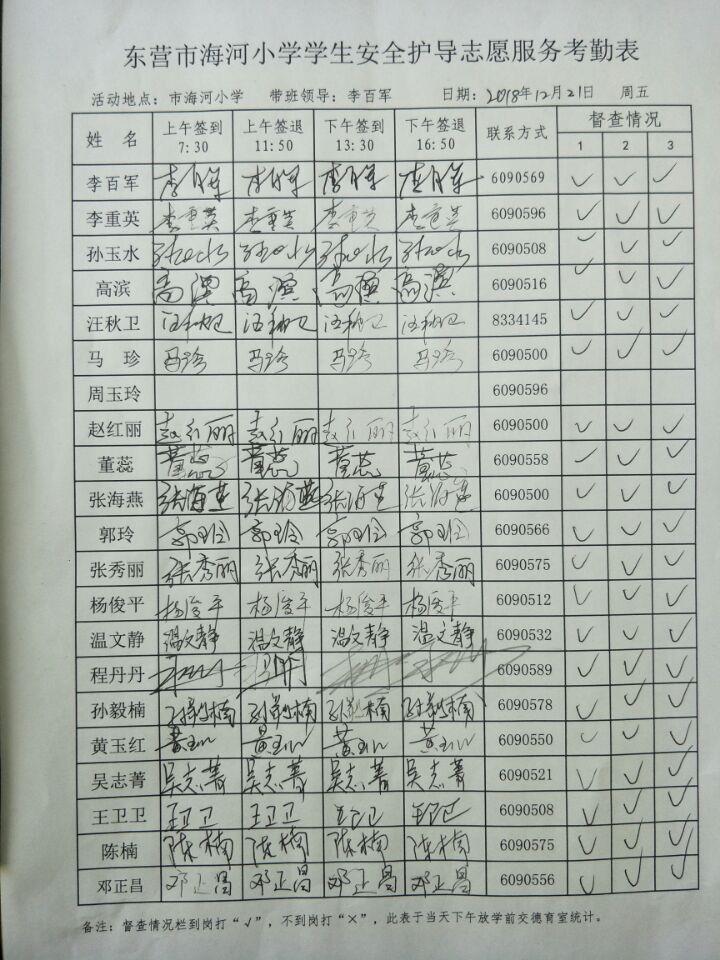 东营市海河小学学生安全护导志愿服务考勤表
活动地点：市海河小学 带班领导：李百军 日期：2018年12月21日 周五
姓 名 上午签到 7:30 上午签退 11:50 下午签到 13:30 下午签退 16:50 联系方式 督查情况 1 2 3
李百军 李百军 李百军 李百军 李百军 6090569 √ √ √
李重英 李重英 李重英 李重英 李重英 6090596 √ √ √
孙玉水 孙玉水 孙玉水 孙玉水 孙玉水 6090508 √ √ √
高滨 高滨 高滨 高滨 高滨 6090516 √ √ √
汪秋卫 汪秋卫 汪秋卫 汪秋卫 汪秋卫 8334145 √ √ √
马 珍 马珍 马珍 马珍 马珍 6090500 √ √ √
周玉玲 6090596
赵红丽 赵红丽 赵红丽 赵红丽 赵红丽 6090500 √ √ √
董蕊 董蕊 董蕊 董蕊 董蕊 6090558 √ √ √
张海燕 张海燕 张海燕 张海燕 张海燕 6090500 √ √ √
郭玲 郭玲 郭玲 郭玲 郭玲 6090566 √ √ √
张秀丽 张秀丽 张秀丽 张秀丽 张秀丽 6090575 √ √ √
杨俊平 杨俊平 杨俊平 杨俊平 杨俊平 6090512 √ √ √
温文静 温文静 温文静 温文静 温文静 6090532 √ √ √
程丹丹 6090589 √ √ √
孙毅楠 孙毅楠 孙毅楠 孙毅楠 孙毅楠 6090578 √ √ √
黄玉红 黄玉红 黄玉红 黄玉红 黄玉红 6090550 √ √ √
吴志菁 吴志菁 吴志菁 吴志菁 吴志菁 6090521 √ √ √
王卫卫 王卫卫 王卫卫 王卫卫 王卫卫 6090508 √ √ √
陈楠 陈楠 陈楠 陈楠 陈楠 6090575 √ √ √
邓正昌 邓正昌 邓正昌 邓正昌 邓正昌 6090556 √ √ √
备注：督查情况栏到岗打“√”，不到岗打“×”，此表于当天下午放学前交德育室统计。